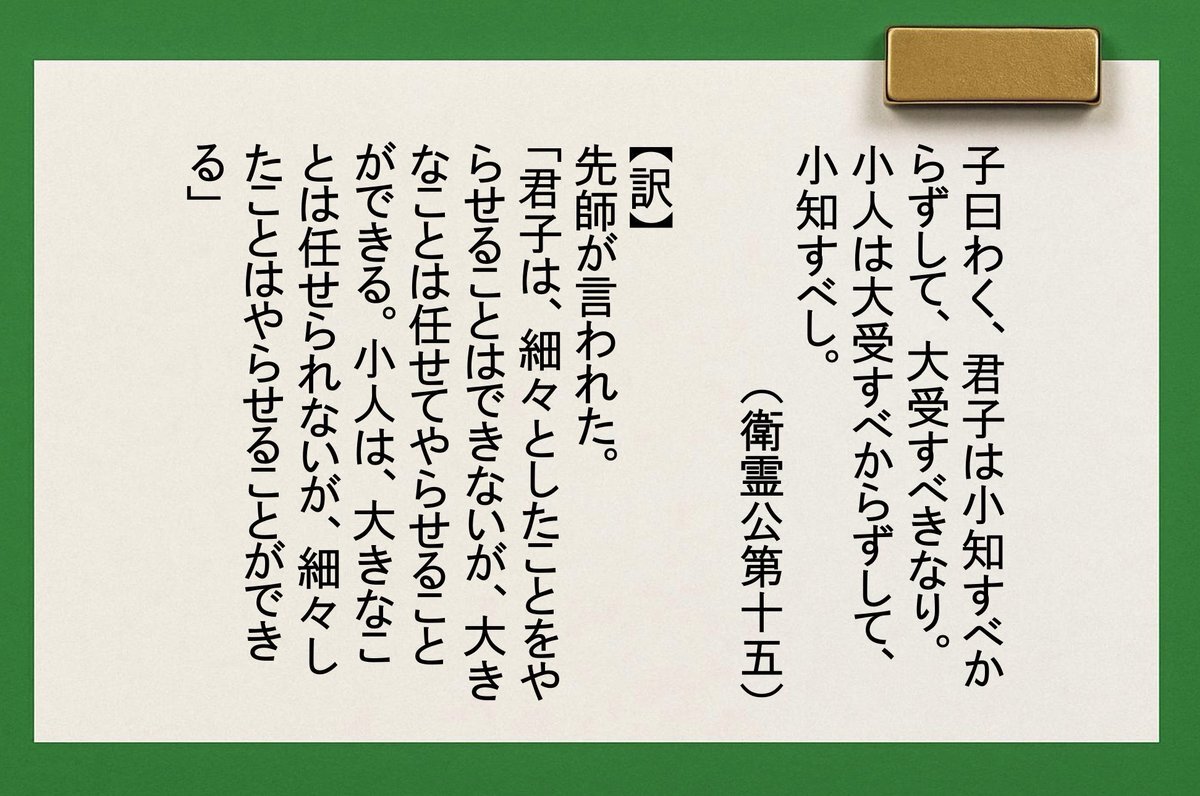 子曰わく、君子は小知すべか
らずして、大受すべきなり。
小人は大受すべからずして、
小知すべし。
（衛霊公第十五）
【訳】
先師が言われた。
「君子は、細々としたことをや
らせることはできないが、大き
なことは任せてやらせること
ができる。小人は、大きなこ
とは任せられないが、細々し
たことはやらせることができ
る」